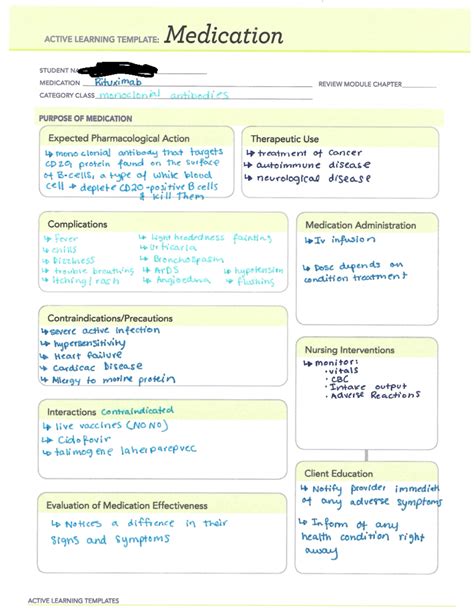 ACTIVE LEARNING TEMPLATE: Medication
STUDENT NA
MEDICATION Rituximab
REVIEW MODULE CHAPTER
CATEGORY CLASS monoclonal antibodies
PURPOSE OF MEDICATION
Expected Pharmacological Action
↳ mono clonial antibody that targets
CD20, protein found on the surface
of B-cells, a type of white blood
cell → deplete CD20-positive B cells
& kill them
Therapeutic Use
↳ treatment of cancer
↳ autoimmune disease
↳ neurological disease
Complications
↳ fever
↳ chills
↳ Dizziness
↳ trouble breathing
↳ itching/rash
↳ light headedness fainting
↳ Urticaria
↳ Bronchospasm
↳ ARDS
↳ Angioedema
↳ hypotension
↳ flushing
Medication Administration
↳ Iv infusion
↳ Dose depends on
condition treatment
Contraindications/Precautions
↳ severe active infection
↳ hypersensitivity
↳ Heart failure
↳ Cardiac Disease
↳ Allergy to murine protein
Nursing Interventions
↳ monitor:
• vitals
• CBC
• Intake output
• Adverse Reactions
Interactions Contraindicated
↳ live vaccines (NO NO)
↳ Cidofovir
↳ talimogene
Client Education
↳ Notify provider immedieh
of any adverse symptoms
↳ Inform of any
health condition right
away
Evaluation of Medication Effectiveness
↳ Notices a diffience in their
signs and symptoms
ACTIVE LEARNING TEMPLATES